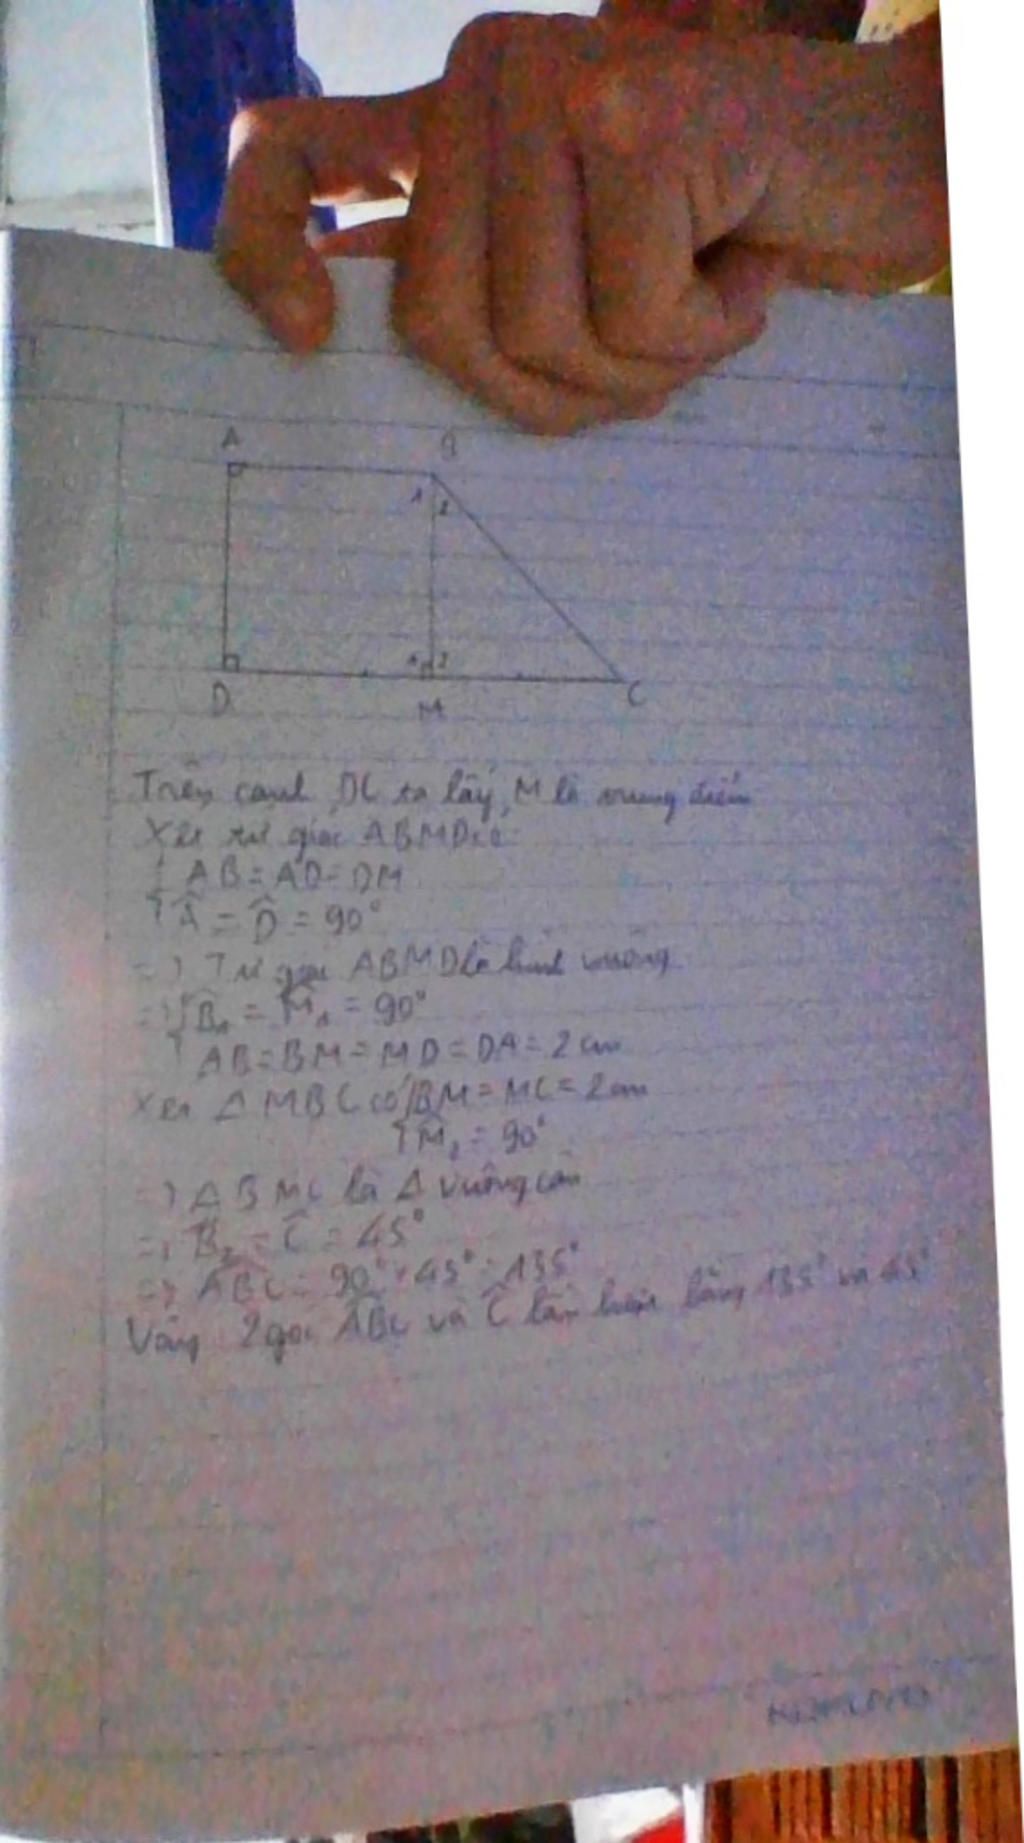 A B
1 2
1 2
D M C
Trên cạnh DC ta lấy M là trung điểm
Xét tứ giác ABMD có:
AB = AD = DM
Â = D̂ = 90°
=> Tứ giác ABMD là hình vuông
=> B̂₁ = M̂₁ = 90°
AB = BM = MD = DA = 2 cm
Xét Δ MBC có BM = MC = 2cm
M̂₂ = 90°
=> Δ BMC là Δ vuông cân
=> B̂₂ = Ĉ = 45°
=> ABC = 90° + 45° = 135°
Vậy 2 góc ABC và Ĉ lần lượt bằng 135° và 45°